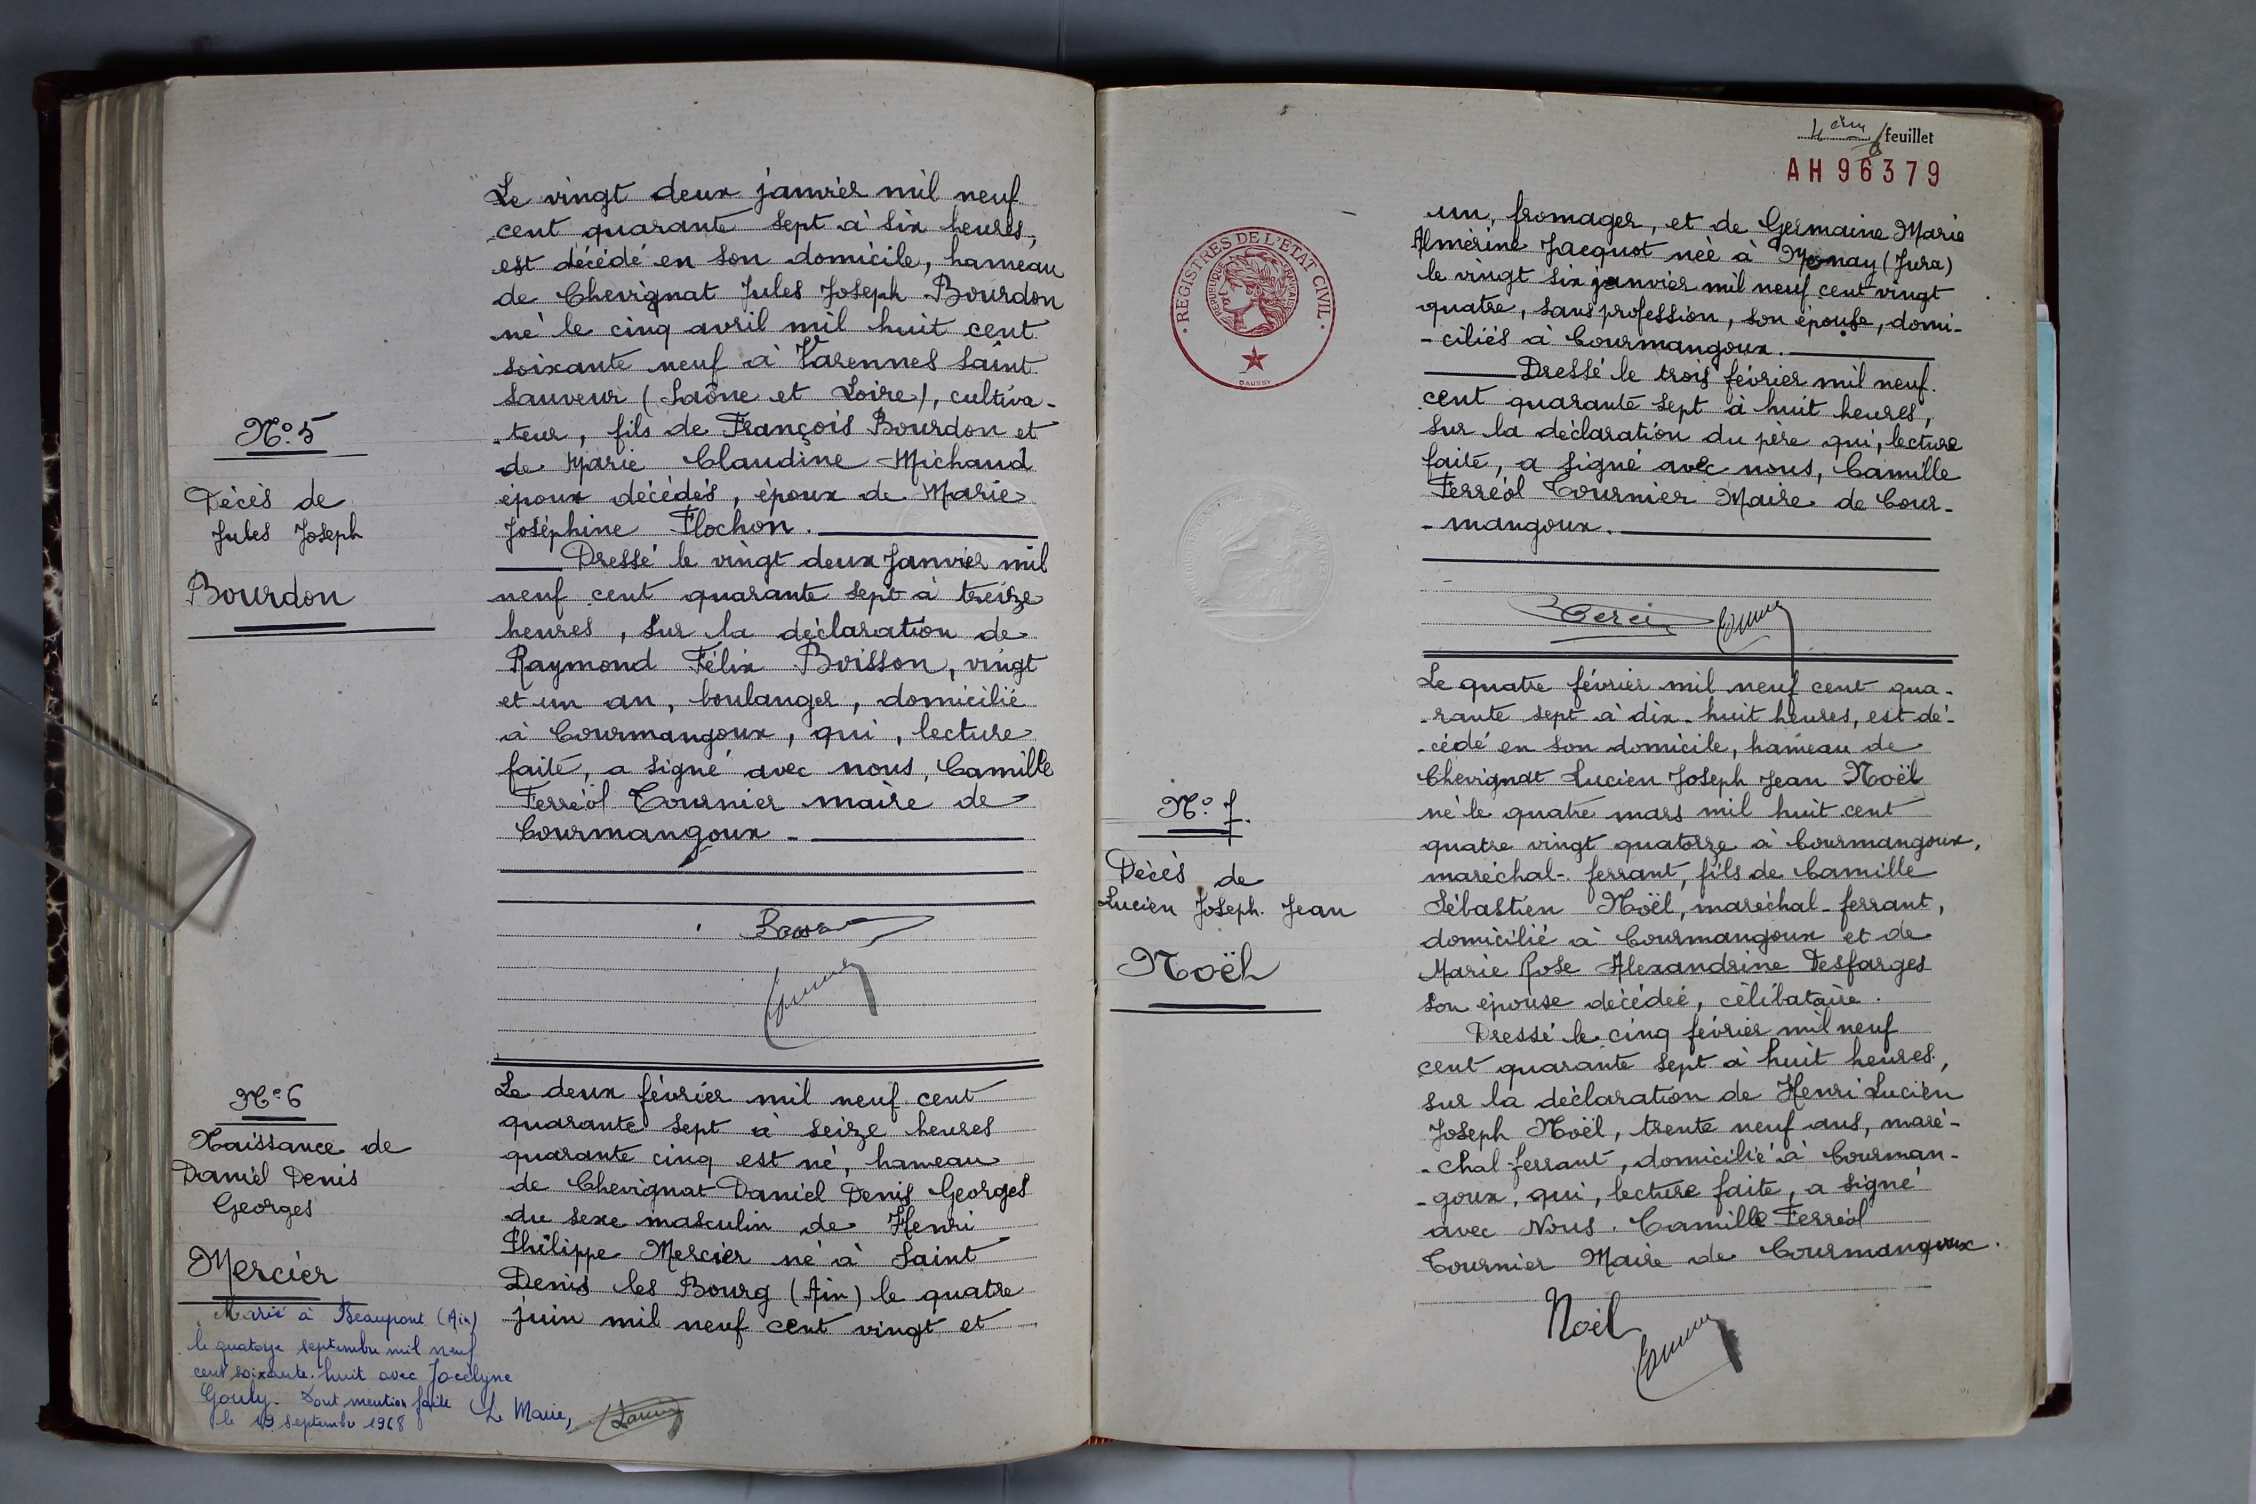 N° 5
Décès de
Jules Joseph
Bourdon
Le vingt deux janvier mil neuf
cent quarante sept à six heures,
est décédé en son domicile, hameau
de Chevignat Jules Joseph Bourdon
né le cinq avril mil huit cent
soixante neuf à Varennes Saint
Sauveur (Saône et Loire), cultiva-
teur, fils de François Bourdon et
de Marie Claudine Michaud
époux décédés, époux de Marie
Joséphine Flochon.
Dressé le vingt deux Janvier mil
neuf cent quarante sept à treize
heures, sur la déclaration de
Raymond Félix Boisson, vingt
et un an, boulanger, domicilié
à Courmangoux, qui, lecture
faite, a signé avec nous, Camille
Ferréol Tournier maire de
Courmangoux -
N° 6
Naissance de
Daniel Denis
Georges
Mercier
Marié à Beaupont (Ain)
le quatorze septembre mil neuf
cent soixante-huit avec Jocelyne
Gouly. Dont mention faite
le 19 septembre 1968
Le Maire,
Le deux février mil neuf cent
quarante sept à seize heures
quarante cinq est né, hameau
de Chevignat Daniel Denis Georges
du sexe masculin de Henri
Philippe Mercier né à Saint
Denis les Bourg (Ain) le quatre
juin mil neuf cent vingt et
4ème feuillet
AH 96379
REGISTRES DE L'ETAT CIVIL
REPUBLIQUE FRANCAISE
un, fromager, et de Germaine Marie
Almérine Jacquot née à Monay (Jura)
le vingt six janvier mil neuf cent vingt
quatre, sans profession, son épouse, domi-
-ciliés à Courmangoux.
Dressé le trois février mil neuf
cent quarante sept à huit heures,
sur la déclaration du père qui, lecture
faite, a signé avec nous, Camille
Ferréol Tournier Maire de Cour-
-mangoux.
N° 7.
Décès de
Lucien Joseph. Jean
Noël
Le quatre février mil neuf cent qua-
-rante sept à dix-huit heures, est dé-
-cédé en son domicile, hameau de
Chevignat Lucien Joseph Jean Noël
né le quatre mars mil huit cent
quatre vingt quatorze à Courmangoux,
maréchal-ferrant, fils de Camille
Sébastien Noël, maréchal-ferrant,
domicilié à Courmangoux et de
Marie Rose Alexandrine Desfarges
son épouse décédée, célibataire.
Dressé le cinq février mil neuf
cent quarante sept à huit heures,
sur la déclaration de Henri Lucien
Joseph Noël, trente neuf ans, maré-
-chal-ferrant, domicilié à Courman-
-goux, qui, lecture faite, a signé
avec Nous. Camille Ferréol
Tournier Maire de Courmangoux.
Noël